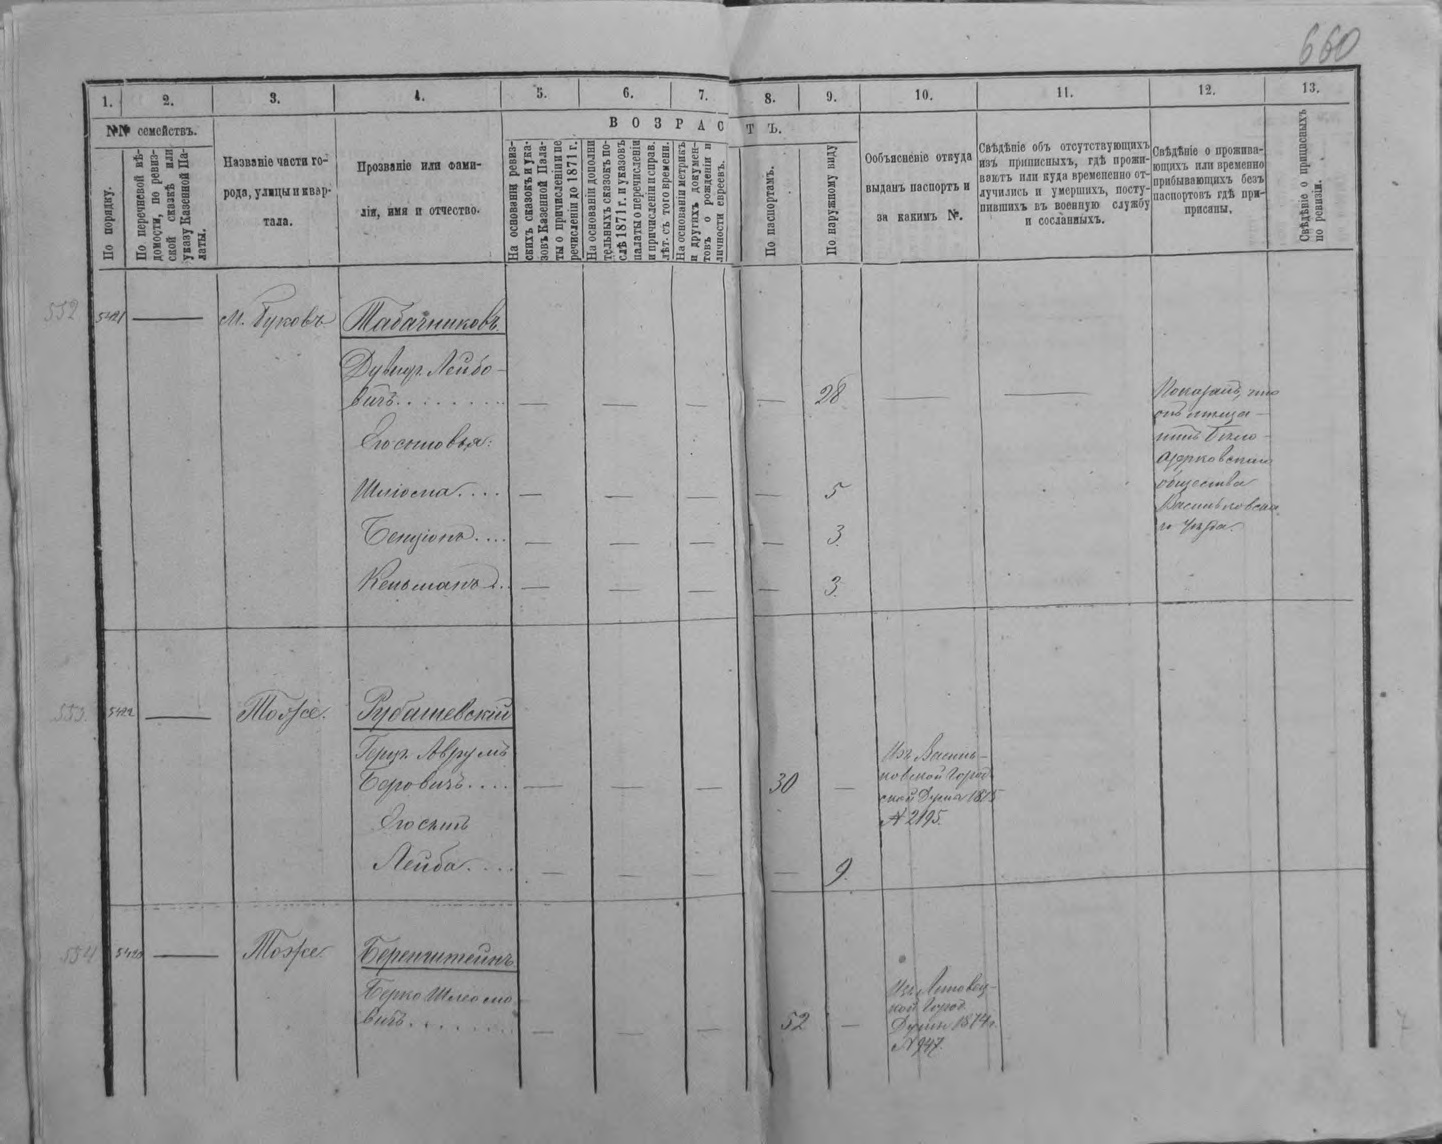 660
1. 2. 3. 4. 5. 6. 7. 8. 9. 10. 11. 12. 13.
№№ семействъ.
По порядку.
По перечневой вѣ-
домости, по ревиз-
ской сказкѣ или
указу Казенной Па-
латы.
Названіе части го-
рода, улицы и квар-
тала.
Прозваніе или фами-
лія, имя и отчество.
ВОЗРАСТЪ.
На основаніи ревиз-
скихъ сказокъ и ука-
зовъ Казенной Пала-
ты о причисленіи и пе
речисленіи до 1871 г.
На основаніи дополни
тельныхъ сказокъ по-
слѣ 1871 г. и указовъ
палаты о перечисленіи
и причисленіи и справ.
лѣт. съ того времени.
На основаніи метрикъ
и другихъ докумен-
товъ о рожденіи и
личности евреевъ.
По паспортамъ.
По наружному виду
Объясненіе откуда
выданъ паспортъ и
за какимъ №.
Свѣдѣніе объ отсутствующихъ
изъ приписныхъ, гдѣ прожи-
ваютъ или куда временно от-
лучились и умершихъ, посту-
пившихъ въ военную службу
и сосланныхъ.
Свѣдѣніе о прожива-
ющихъ или временно
прибывающихъ безъ
паспортовъ гдѣ при-
писаны.
Свѣдѣніе о приписныхъ
по ревизіи.
552 5421 — м. Буковъ Табачниковъ
Дувидъ Лейбо-
вичъ........ — — — — 28 — —
Сыновья:
Шліома.... — — — — 5
Бенціонъ.... — — — — 3
Кельманъ.. — — — — 3
Показалъ, что
онъ мѣща-
нинъ Бѣло-
церковскаго
общества
Васильковска
го уѣзда.
553 5422 — Тоже. Рубашевскій
Герцъ Аврумъ
Беровичъ.... — — — 30 —
Сынъ
Лейба.... — — — — 9
Изъ Василь-
ковской Город
ской Думы 1875
№ 2195.
554 5423 — Тоже Беренштейнъ
Берко Шліомо-
вичъ....... — — — 52 —
Изъ Липовец-
кой Город.
Думы 1874 г.
№ 947.